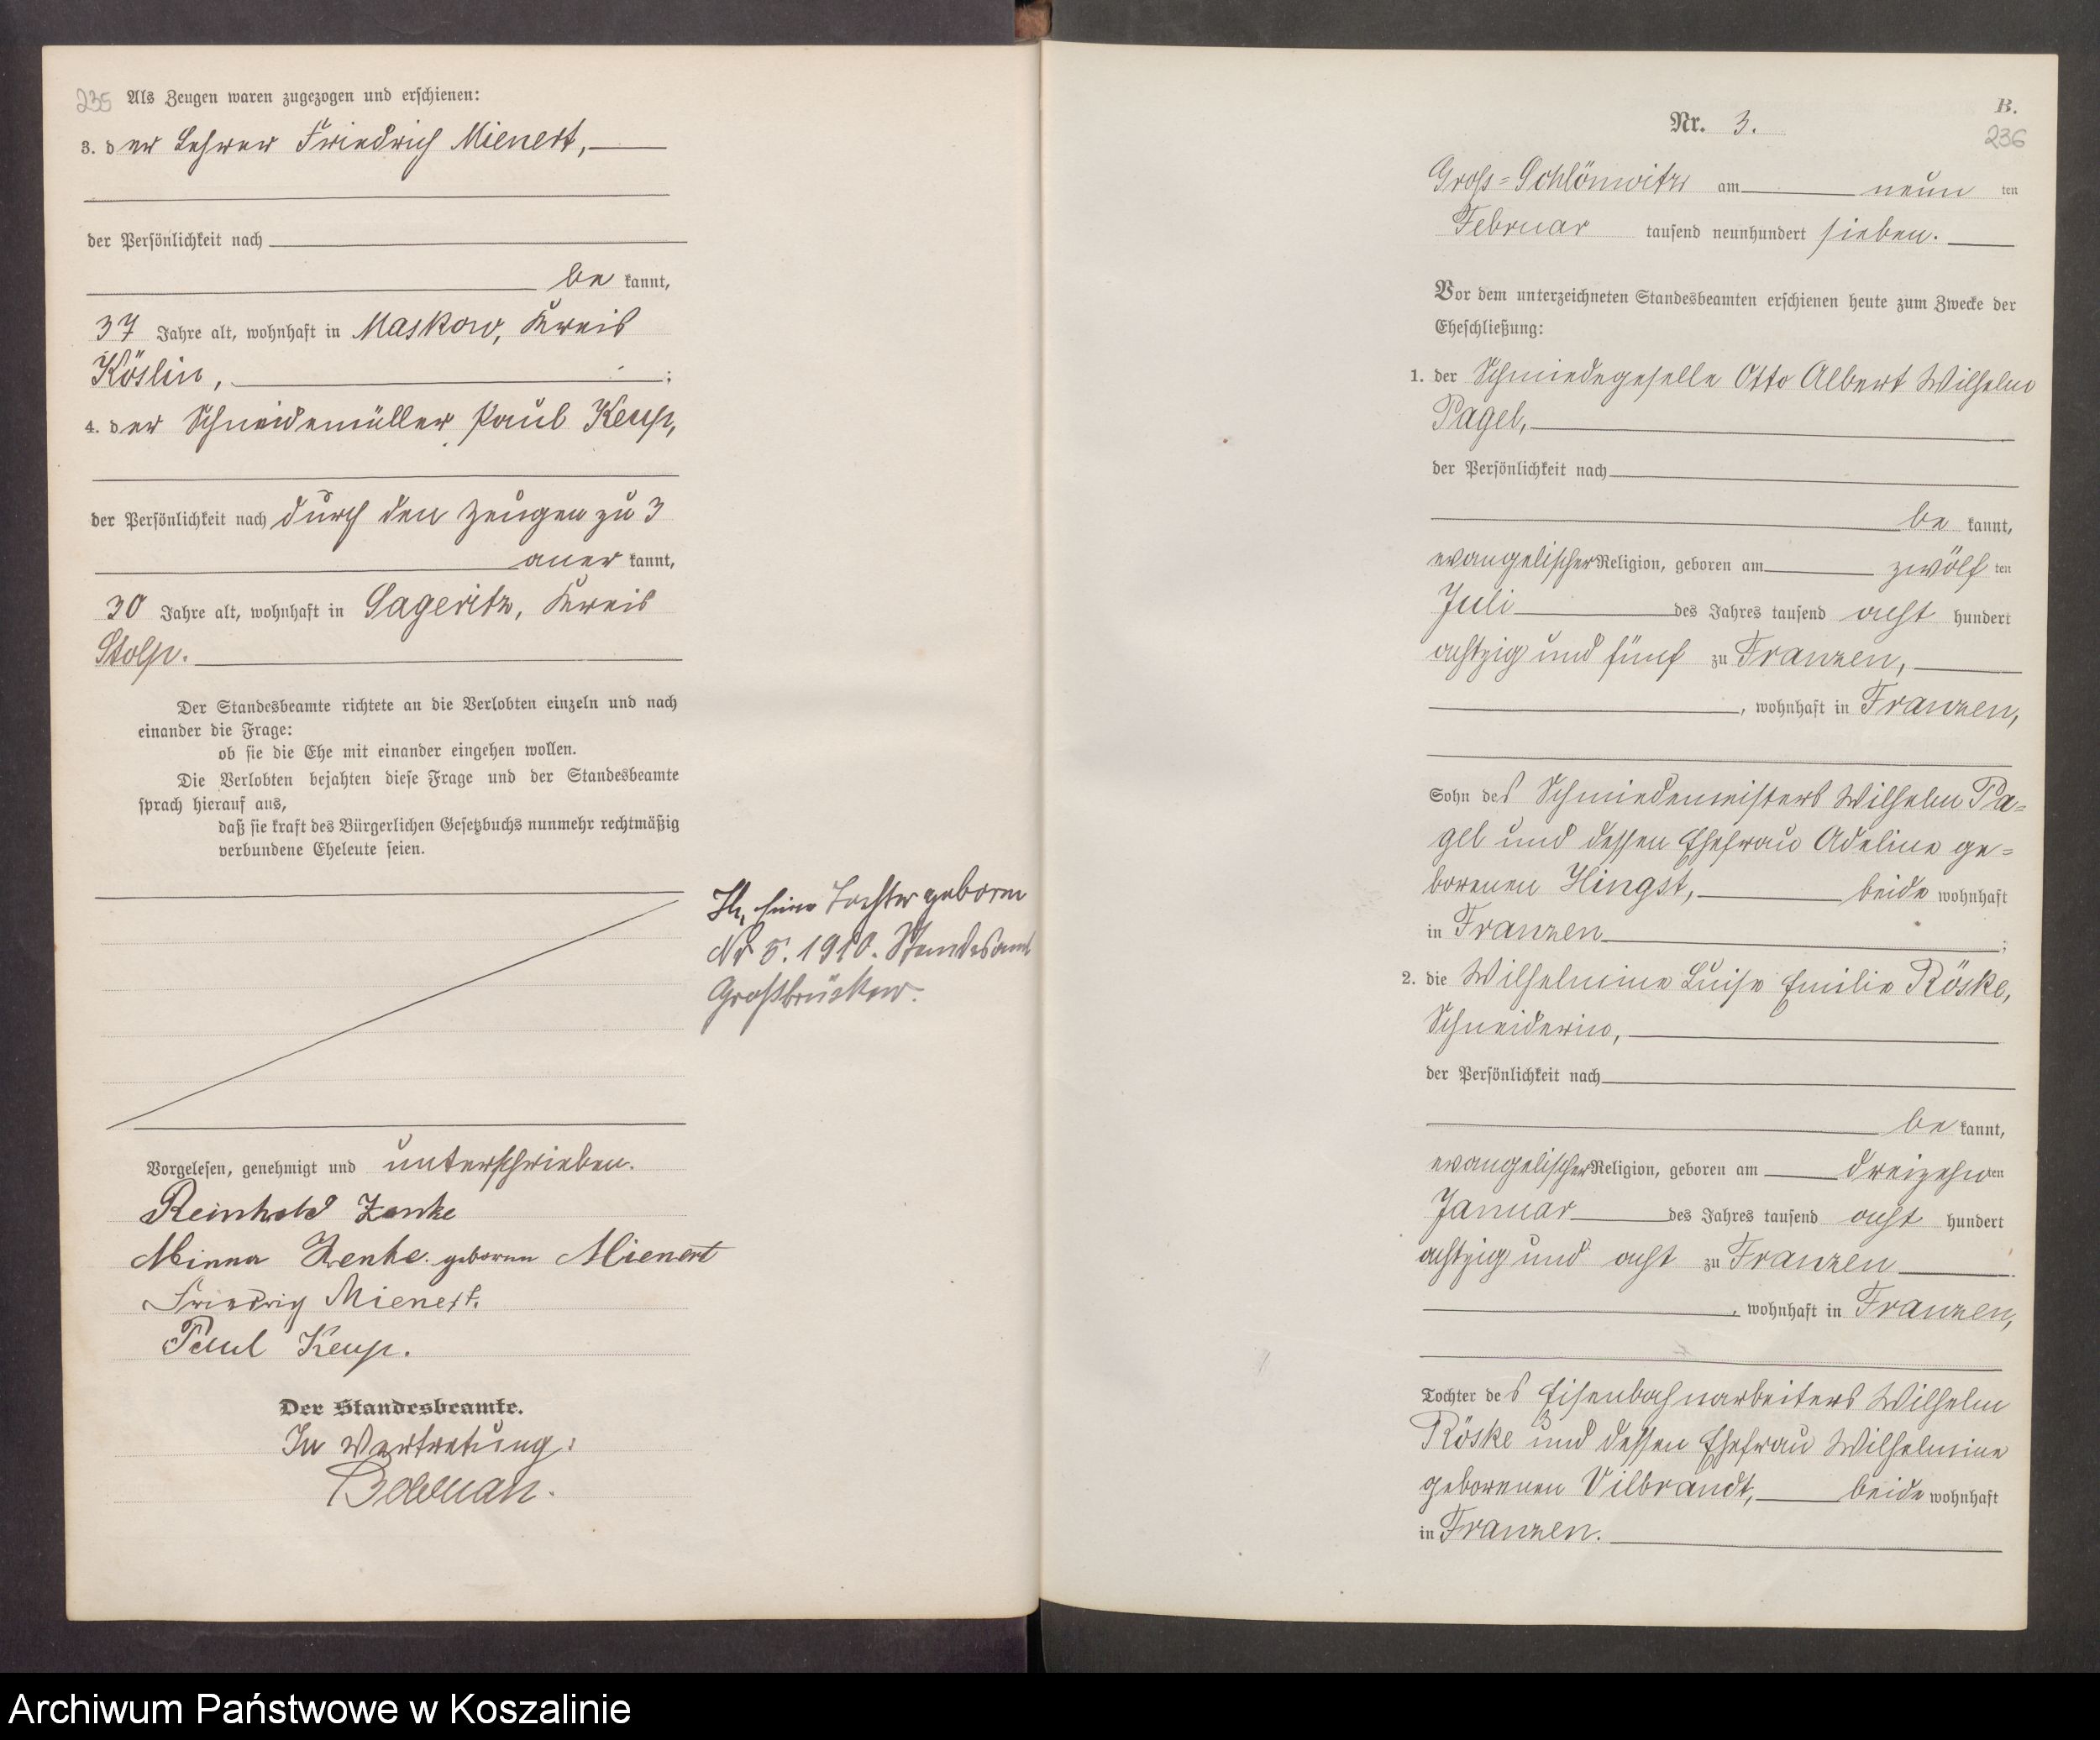 235 Als Zeugen waren zugezogen und erschienen:
3. der Lehrer Friedrich Mienert,
der Persönlichkeit nach
be kannt,
37 Jahre alt, wohnhaft in Maskow, Kreis
Köslin, ;
4. der Schneidemüller Paul Keup,
der Persönlichkeit nach durch den Zeugen zu 3
aner kannt,
30 Jahre alt, wohnhaft in Sageritz, Kreis
Stolp.
Der Standesbeamte richtete an die Verlobten einzeln und nach
einander die Frage:
ob sie die Ehe mit einander eingehen wollen.
Die Verlobten bejahten diese Frage und der Standesbeamte
sprach hierauf aus,
daß sie kraft des Bürgerlichen Gesetzbuchs nunmehr rechtmäßig
verbundene Eheleute seien.
eine Tochter geboren
Nr 5. 1910. Standesamt
Großbrüskow.
Vorgelesen, genehmigt und unterschrieben.
Reinhold Zenke
Minna Zenke geborene Mienert
Friedrich Mienert.
Paul Keup.
Der Standesbeamte.
In Vertretung:
B.
Nr. 3.
236
Gross-Schlönwitz am neun ten
Februar tausend neunhundert sieben.
Vor dem unterzeichneten Standesbeamten erschienen heute zum Zwecke der
Eheschließung:
1. der Schmiedegeselle Otto Albert Wilhelm
Pagel,
der Persönlichkeit nach
be kannt,
evangelischer Religion, geboren am zwölf ten
Juli des Jahres tausend acht hundert
achtzig und fünf zu Franzen,
, wohnhaft in Franzen,
Sohn des Schmiedemeisters Wilhelm Pa-
gel und dessen Ehefrau Adeline ge-
borenen Hingst, beide wohnhaft
in Franzen ;
2. die Wilhelmine Luise Emilie Röske,
Schneiderin,
der Persönlichkeit nach
be kannt,
evangelischer Religion, geboren am dreizehn ten
Januar des Jahres tausend acht hundert
achtzig und acht zu Franzen
, wohnhaft in Franzen,
Tochter des Eisenbahnarbeiters Wilhelm
Röske und dessen Ehefrau Wilhelmine
geborenen Vilbrandt, beide wohnhaft
in Franzen.
Archiwum Państwowe w Koszalinie